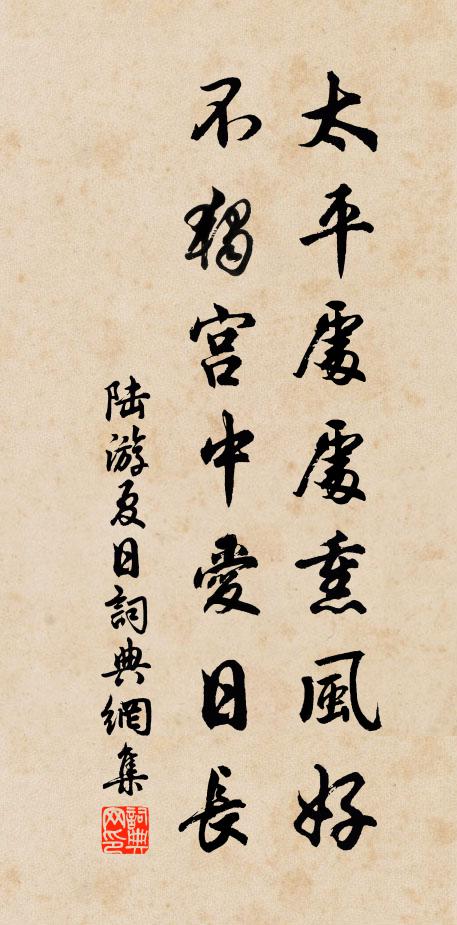 太平處處熏風好
不獨宮中愛日長
陸游夏日詞典網集
詞典網印